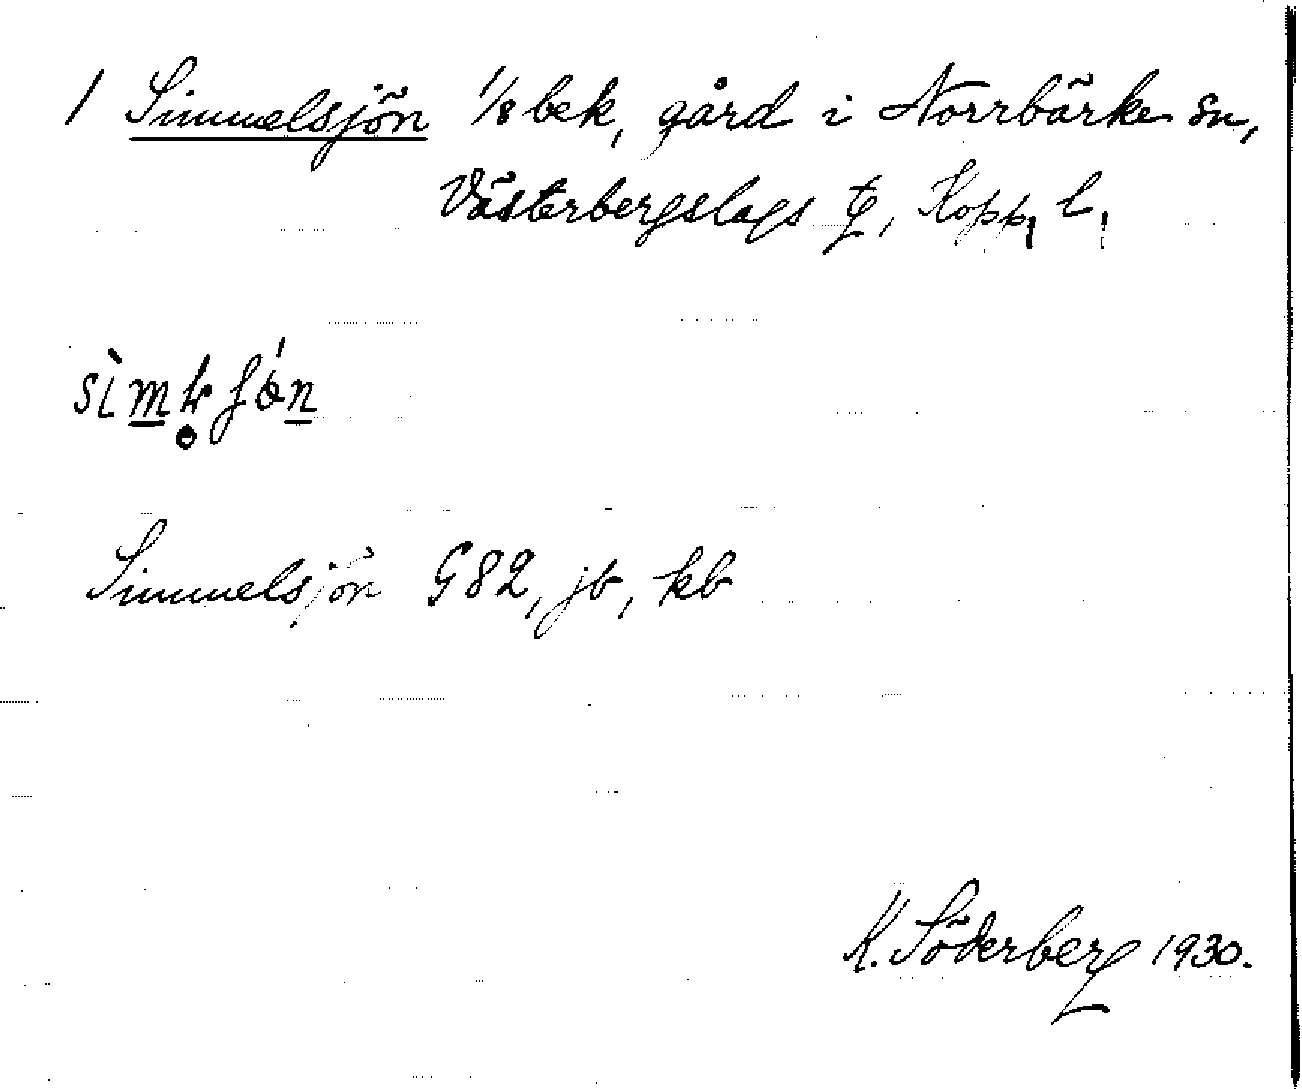 1 Simmelsjön 1/8 bek, gård i Norrbärke sn,
Västerbergslags tg, Kopp, l,
Simmelsjön G82, jb, kb
K. Söderberg 1930.